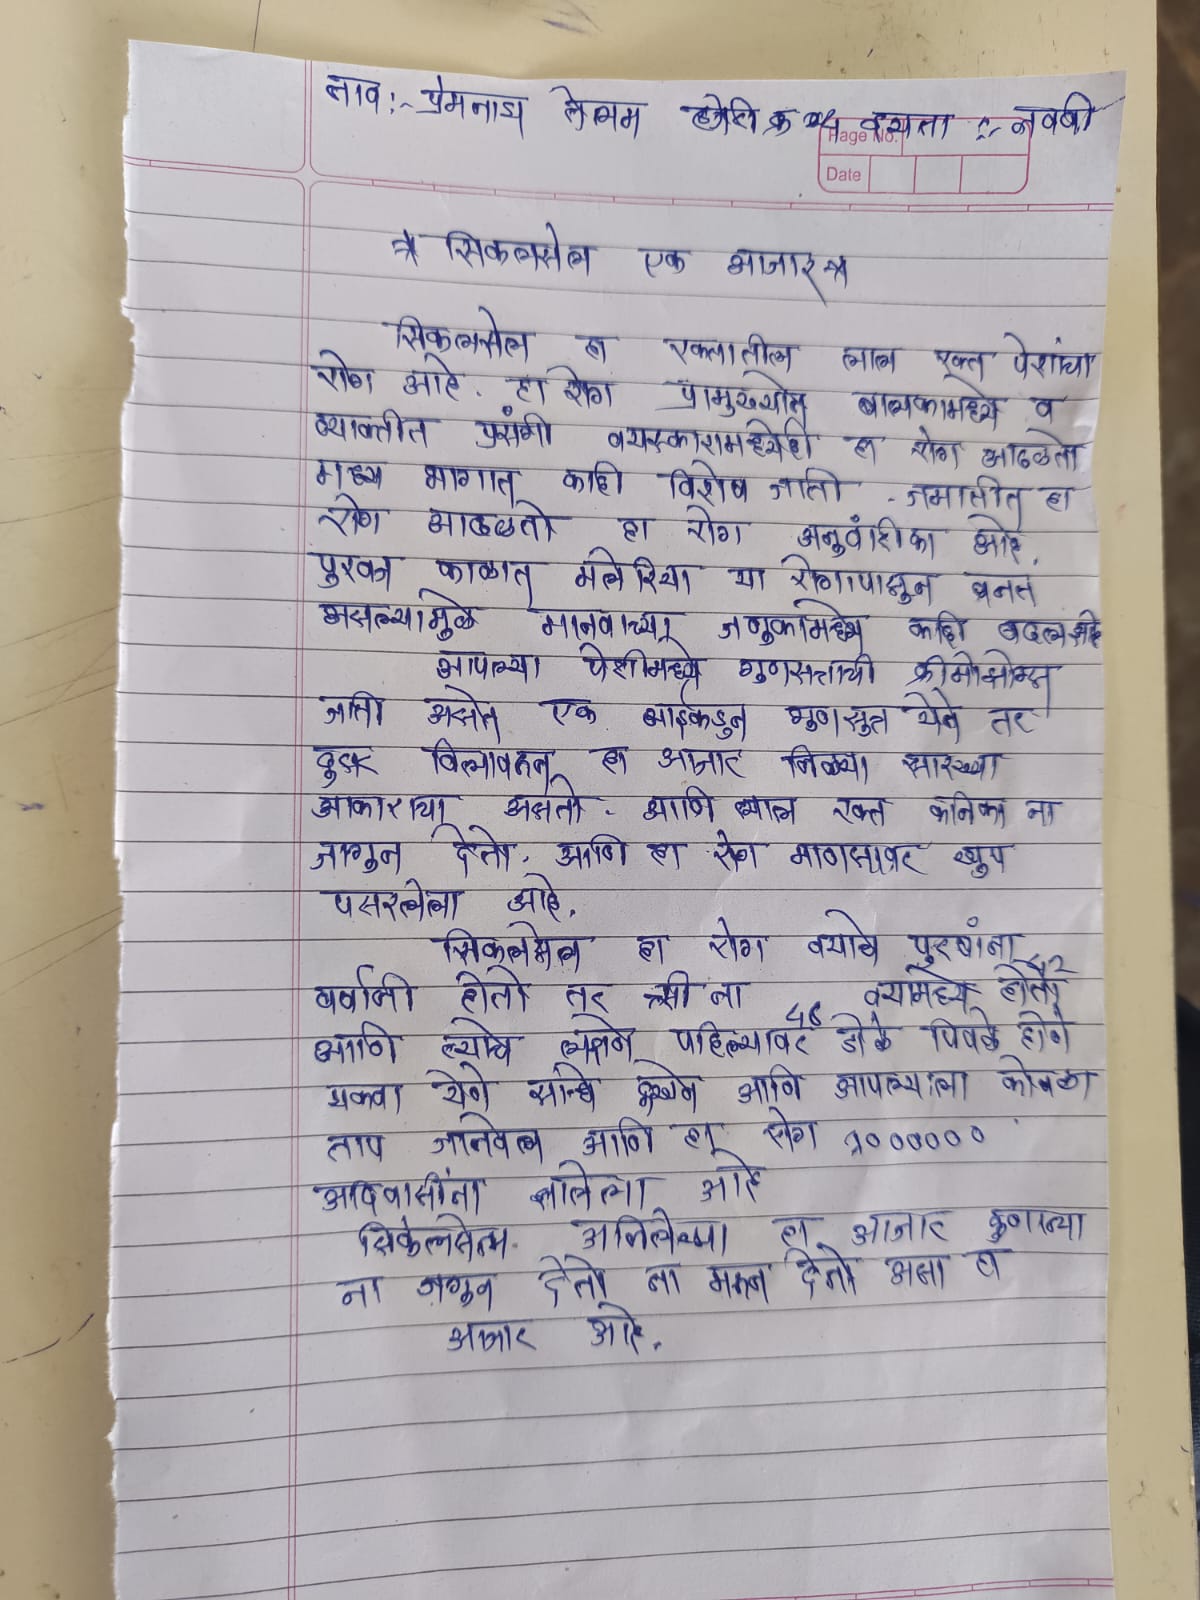 नाव :- प्रेमनाथ लेलम हजेरी क्र ०५ इयत्ता :- नववी
Page No.
Date
* सिकलसेल एक आजार *
सिकलसेल हा रक्तातील लाल रक्त पेशींचा
रोग आहे. हा रोग प्रामुख्याने बालकामध्ये व
व्याक्तीत प्रसंगी वयस्कारामध्येही हा रोग आढळतो
मध्य भागात काही विशेष जाती - जमातीत हा
रोग आढळतो हा रोग अनुवंशीका आहे.
पुरवा काळात् मलेरिया या रोगापासुन बनत
असल्यामुळे मानवाच्या जणुकामध्ये काही बदल आहे
आपल्या पेशीमध्ये गुणसत्राची क्रोमोसोम्स
जाती असेत एक आईकडुन गुणसुत्र येते तर
दुसरे विलावहन हा आजार विळ्या सारख्या
आकाराचा असतो. आणि लाल रक्त कनिका ना
जागुन देतो. आणि हा रोग माणसावर खुप
पसरलेला आहे.
सिकलसेल हा रोग वयाचे पुरषांना ४२
वर्षानी होतो तर स्त्री ना ४८ वयामध्ये होतो
आणि त्याचे लक्षणे पहिल्यावर डोळे पिवळे होणे
थकवा येणे सान्धे दुखणे आणि आपल्याला कोवळा
ताप जानवेल आणि हा रोग १००००००
आदिवासींना झालेला आहे
सिकेलसेल अनिलेमया हा आजार कुणाच्या
ना जगुन देतो ना मरुन देतो असा हा
अजार आहे.